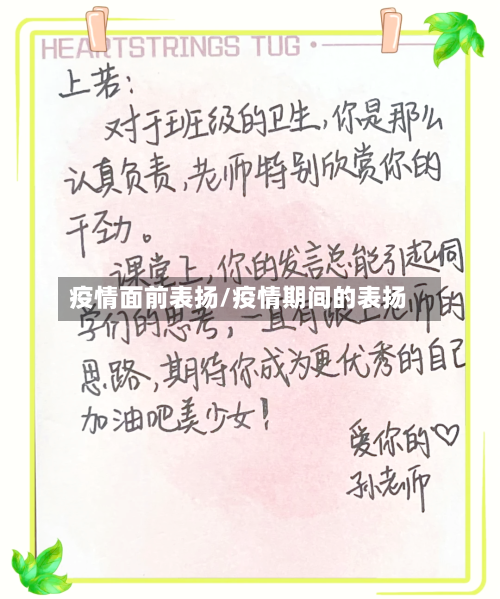 HEARTSTRINGS TUG
上若：
对于班级的卫生，你是那么
认真负责，老师特别欣赏你的
干劲。
课堂上，你的发言总能引起同
疫情面前表扬/疫情期间的表扬
学们的思考，一直有跟上老师的
思路，期待你成为更优秀的自己
加油吧美少女！
爱你的♡
孙老师